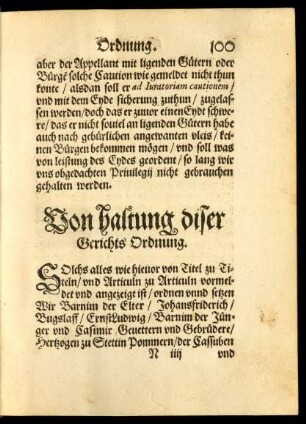 Ordnung. 100
aber der Appellant mit ligenden Gütern oder
Bürgē solche Caution wie gemeldet nicht thun
konte / alsdan soll er ad Iuratoriam cautionem /
vnd mit dem Eyde sicherung zuthun / zugelas-
sen werden / doch das er zuuor einen Eydt schwe-
re / das er nicht souiel an ligenden Gütern habe
auch nach gebürlichen angewanten vleis / kei-
nen Bürgen bekommen mögen / vnd soll was
von leistung des Eydes geordent / so lang wir
vns obgedachten Priuilegij nicht gebrauchen
gehalten werden.
Von haltung diser
Gerichts Ordnung.
SOlchs alles wie hieuor von Titel zu Ti-
teln / vnd Articuln zu Articuln vormel-
det vnd angezeigt ist / ordnen vnnd setzen
Wir Barnim der Elter / Johansfriderich /
Bugslaff / Ernst Ludwig / Barnim der Jün-
ger vnd Casimir Geuettern vnd Gebrüdere /
Hertzogen zu Stettin Pommern / der Cassuben
N iiij vnd